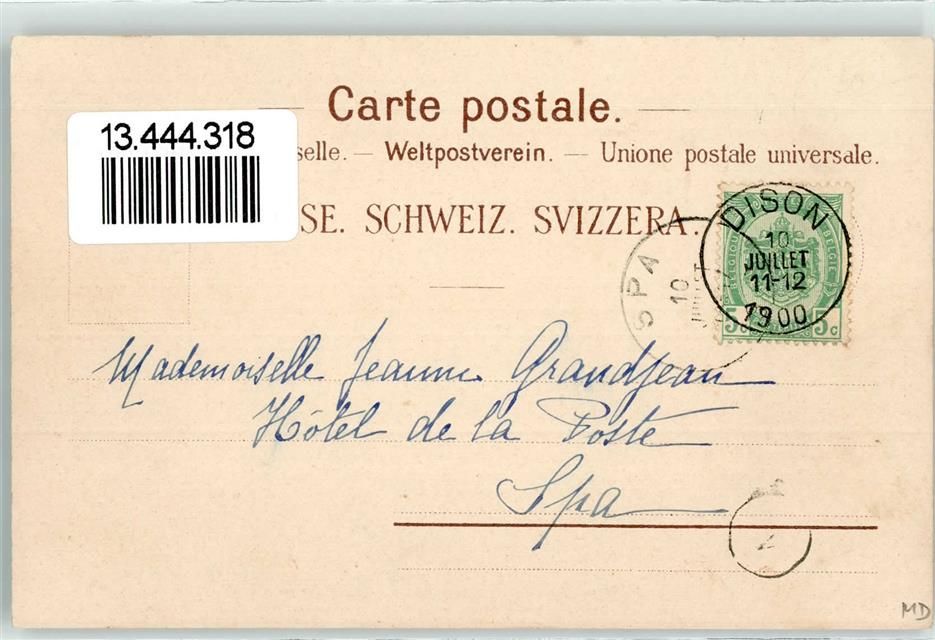 Carte postale.
13.444.318
selle. — Weltpostverein. — Unione postale universale.
SE. SCHWEIZ. SVIZZERA.
DISON
10
JUILLET
11-12
1900
BELGIQUE BELGIË
5c 5c
SPA
10
JUILLET
Mademoiselle Jeanne Grandjean
Hôtel de la Poste
Spa
MD